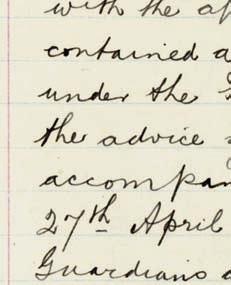 with the
contained
under the
the advice
27th April
Guardians